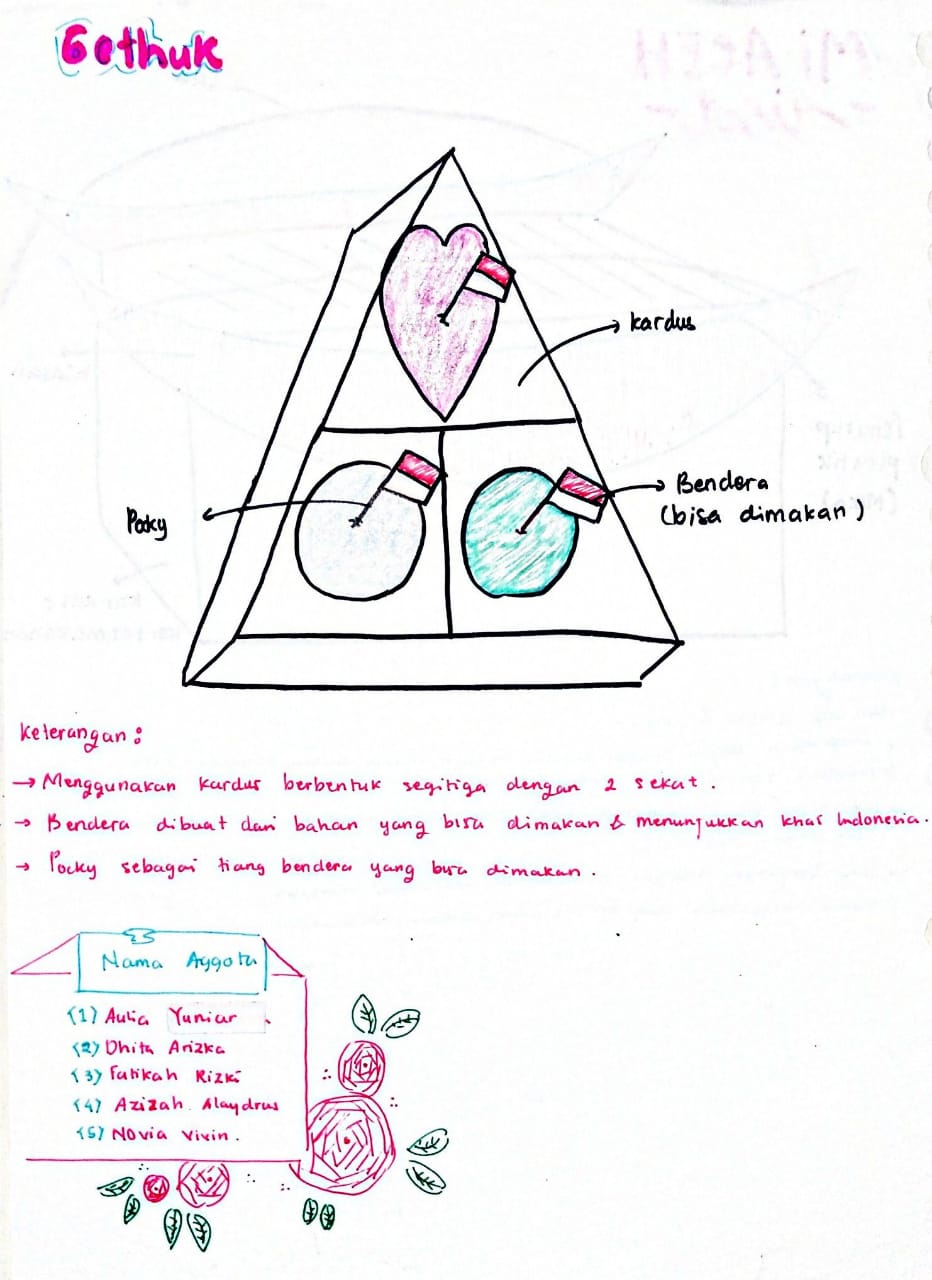 Gethuk
kardus
Bendera
(bisa dimakan)
Pocky
Keterangan :
→ Menggunakan kardus berbentuk segitiga dengan 2 sekat.
→ Bendera dibuat dari bahan yang bisa dimakan & menunjukkan khas Indonesia.
→ Pocky sebagai tiang bendera yang bisa dimakan.
Nama Aggota
(1) Aulia Yuniar
(2) Dhita Arizka
(3) Fatikah Rizki
(4) Azizah Alaydrus
(5) Novia Vivin.